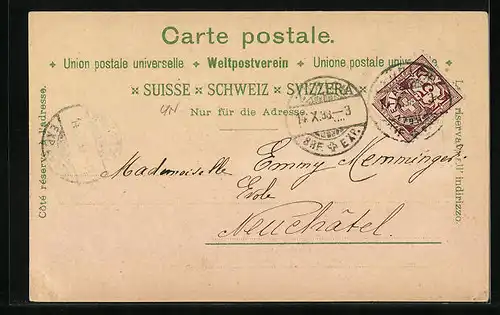 Carte postale.
Union postale universelle Weltpostverein Unione postale universale
SUISSE SCHWEIZ SVIZZERA
Nur für die Adresse.
Côté réservé à l'adresse.
Lato riservato all' indirizzo.
14.X.98.
BRF. EXP.
EXP.
Mademoiselle Emmy Hemminger
Ecole
Neuchâtel.